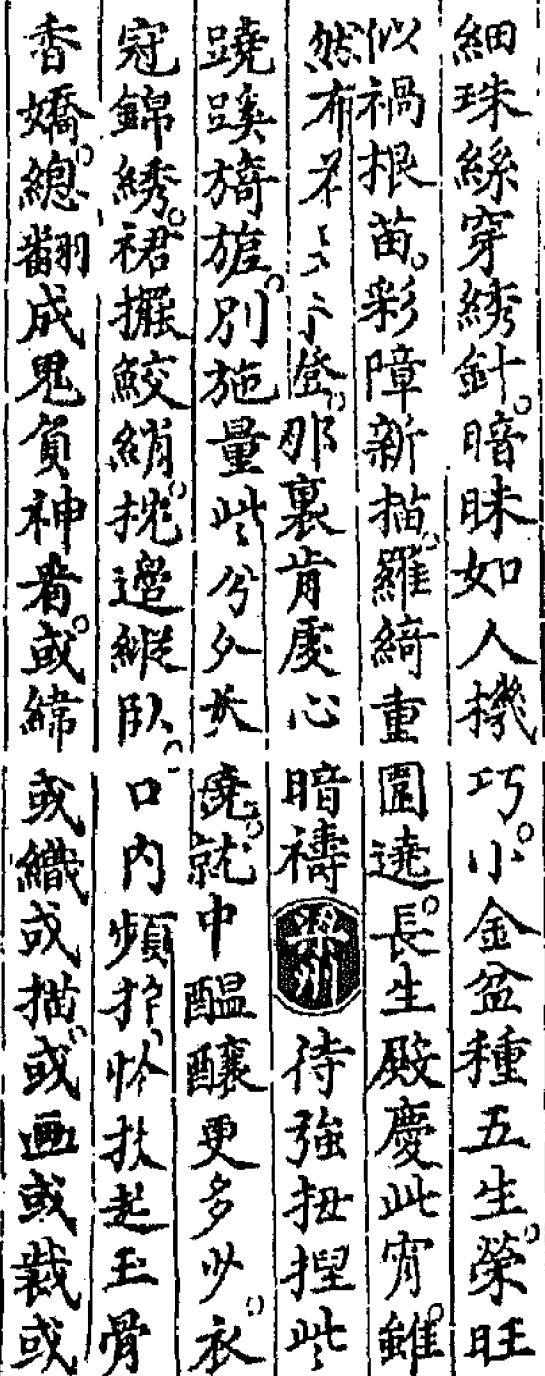 細珠絲穿綉針。暗昧如人機巧。小金盆種五生。榮旺
似禍根苗。彩障新描。羅綺重圍遶。長生殿慶此宵。雖
然布登。那裏肯虔心暗禱梁州待強扭捏些
蹺蹊旖旎。別施量些兮外妖嬈。就中醞釀更多少。衣
冠錦綉。裙擺鮫綃。枕邊縱臥。口內頻怜扶起玉骨
香嬌。總翻成鬼負神着。或緯或織或描。或画或裁或